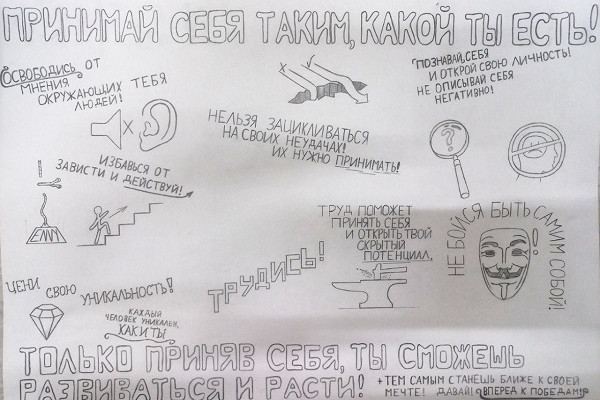 ПРИНИМАЙ СЕБЯ ТАКИМ, КАКОЙ ТЫ ЕСТЬ!
ОСВОБОДИСЬ ОТ
МНЕНИЯ
ОКРУЖАЮЩИХ ТЕБЯ
ЛЮДЕЙ!
НЕЛЬЗЯ ЗАЦИКЛИВАТЬСЯ
НА СВОИХ НЕУДАЧАХ!
ИХ НУЖНО ПРИНИМАТЬ!
ПОЗНАВАЙ СЕБЯ
И ОТКРОЙ СВОЮ ЛИЧНОСТЬ!
НЕ ОПИСЫВАЙ СЕБЯ
НЕГАТИВНО!
?
ИЗБАВЬСЯ ОТ
ЗАВИСТИ И ДЕЙСТВУЙ!
ТРУД ПОМОЖЕТ
ПРИНЯТЬ СЕБЯ
И ОТКРЫТЬ ТВОЙ
СКРЫТЫЙ
ПОТЕНЦИАЛ.
НЕ БОЙСЯ БЫТЬ САМИМ СОБОЙ!
ТРУДИСЬ!
ЦЕНИ СВОЮ УНИКАЛЬНОСТЬ!
КАЖДЫЙ
ЧЕЛОВЕК УНИКАЛЕН,
КАК И ТЫ
ТОЛЬКО ПРИНЯВ СЕБЯ, ТЫ СМОЖЕШЬ
РАЗВИВАТЬСЯ И РАСТИ!
+ ТЕМ САМЫМ СТАНЕШЬ БЛИЖЕ К СВОЕЙ
МЕЧТЕ! ДАВАЙ! ВПЕРЕД К ПОБЕДАМ!